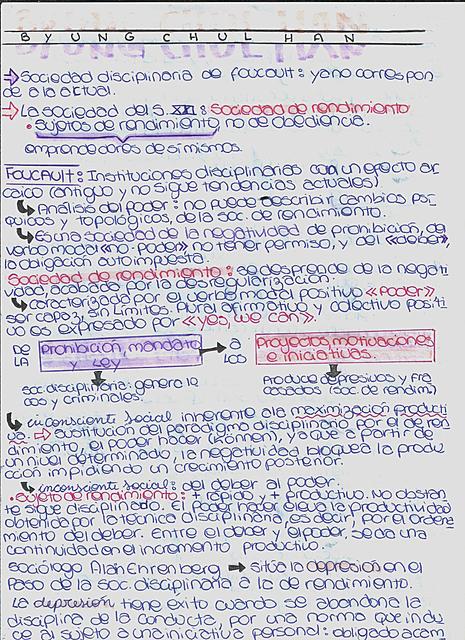 BYUNG CHUL HAN
⇒ Sociedad disciplinaria de foucault: ya no correspon
de a la actual.
⇒ La sociedad del S. XXI: Sociedad de rendimiento
• Sujetos de rendimiento, no de obediencia.
emprendedores de si mismos.
FOUCAULT: Instituciones disciplinarias con un efecto ar
caico (antiguo y no sigue tendencias actuales)
↳ Análisis del poder: no puede describir cambios psí
quicos y topológicos, de la soc. de rendimiento.
↳ Es una sociedad de la negatividad de prohibición, del
verbo modal «no-poder» no tener permiso, y del «deber»,
la obligación autoimpuesta.
Sociedad de rendimiento: se desprende de la negati
vidad, acabada por la desregularización.
↳ caracterizada por el verbo modal positivo «Poder»
ser capaz, sin límites. Plural afirmativo y colectivo positi
vo es expresado por «yes, we can».
DE LA Prohibición, mandato y Ley → a LOS Proyectos, motivaciones e iniciativas.
soc. disciplinaria: genera lo
cos y criminales.
Produce depresivos y fra
casados (soc. de rendim.)
↳ inconscient social inherente a la maximización producti
va. ⇒ Sustitución del paradigma disciplinario por el de ren
dimiento, el poder hacer (können), ya que a partir de
un nivel determinado, la negatividad bloquea la produ
cción impidiendo un crecimiento posterior.
↳ inconscient social: del deber al poder.
• Sujeto de rendimiento: + rápido y + productivo. No obstan
te sigue disciplinado. El poder hacer eleva la productividad
obtenida por la técnica disciplinaria, es decir, por el ordena
miento del deber. Entre el deber y el poder, se da una
continuidad en el incremento productivo.
Sociólogo Alain Ehrenberg → Sitúa la depresión en el
Paso de la soc. disciplinaria a la de rendimiento.
La depresión tiene éxito cuando se abandona la
disciplina de la conducta, por una norma que indu
ce al sujeto a una iniciativa personal: obligado a cam